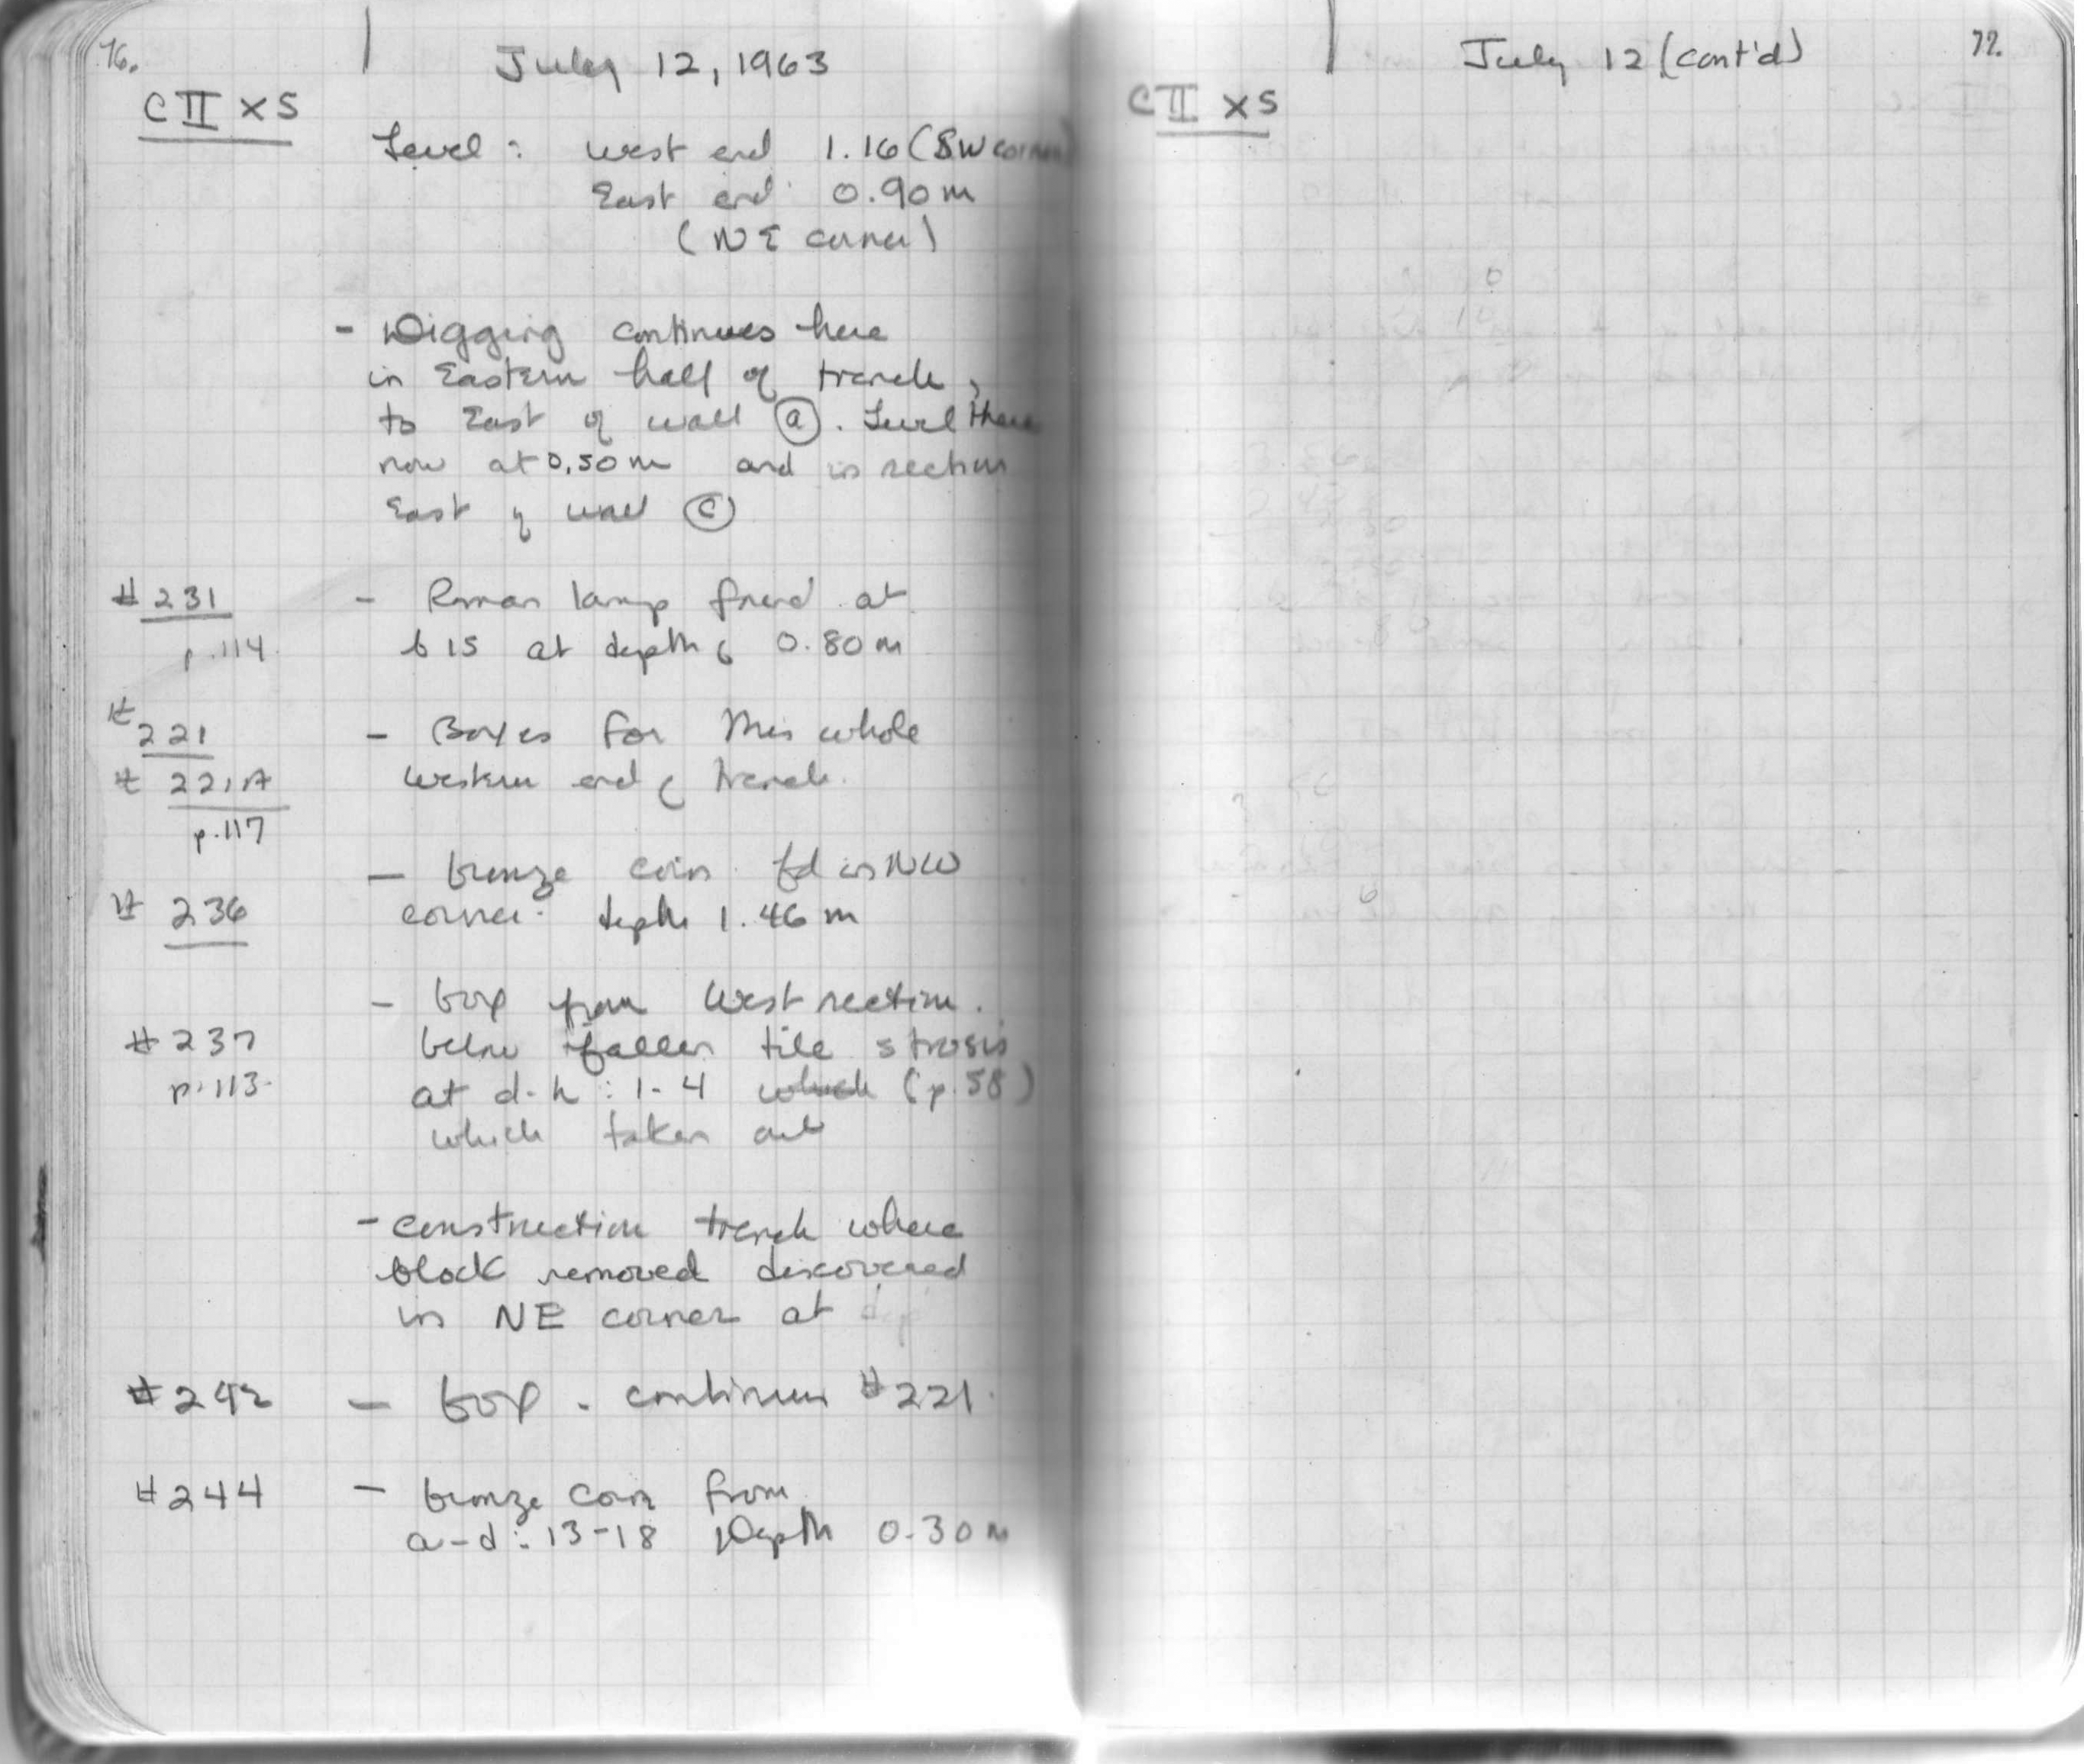 76.
July 12, 1963
C II x S
Level: West end 1.16 (SW corner)
East end 0.90 m
(NE corner)
- Digging continues here
in Eastern half of trench,
to East of wall (a). Level there
now at 0.50 m and in section
East of wall (c)
#231 - Roman lamp found at
p.114 b 15 at depth of 0.80 m
#221 - Boxes for this whole
#221A Western end of trench.
p.117
- bronze coin fd in NW
#236 corner. depth 1.46 m
- box from West section.
#237 below fallen tile strosis
p.113. at d-h: 1-4 which (p.58)
which taken out
- construction trench where
block removed discovered
in NE corner at dep
#242 - box. continues #221.
#244 - bronze coin from
a-d: 13-18 Depth 0.30 m
July 12 (cont'd)
77.
C II x S